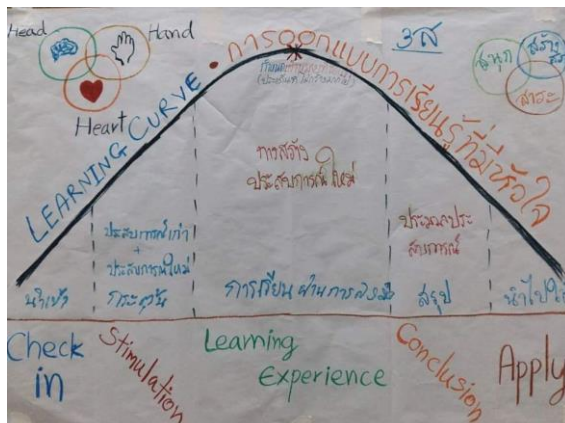 Head
Hand
Heart
LEARNING CURVE • การออกแบบการเรียนรู้ที่มีหัวใจ
3ส
สนุก
สร้าง
สาระ
การสร้าง
ประสบการณ์ใหม่
ประสบการณ์เก่า
+
ประสบการณ์ใหม่
กระตุ้น
นำเข้า
การเรียนผ่านการลงมือ
ประมวลประ
สบการณ์
สรุป
นำไปใช้
Check
in
Stimulation
Learning
Experience
Conclusion
Apply